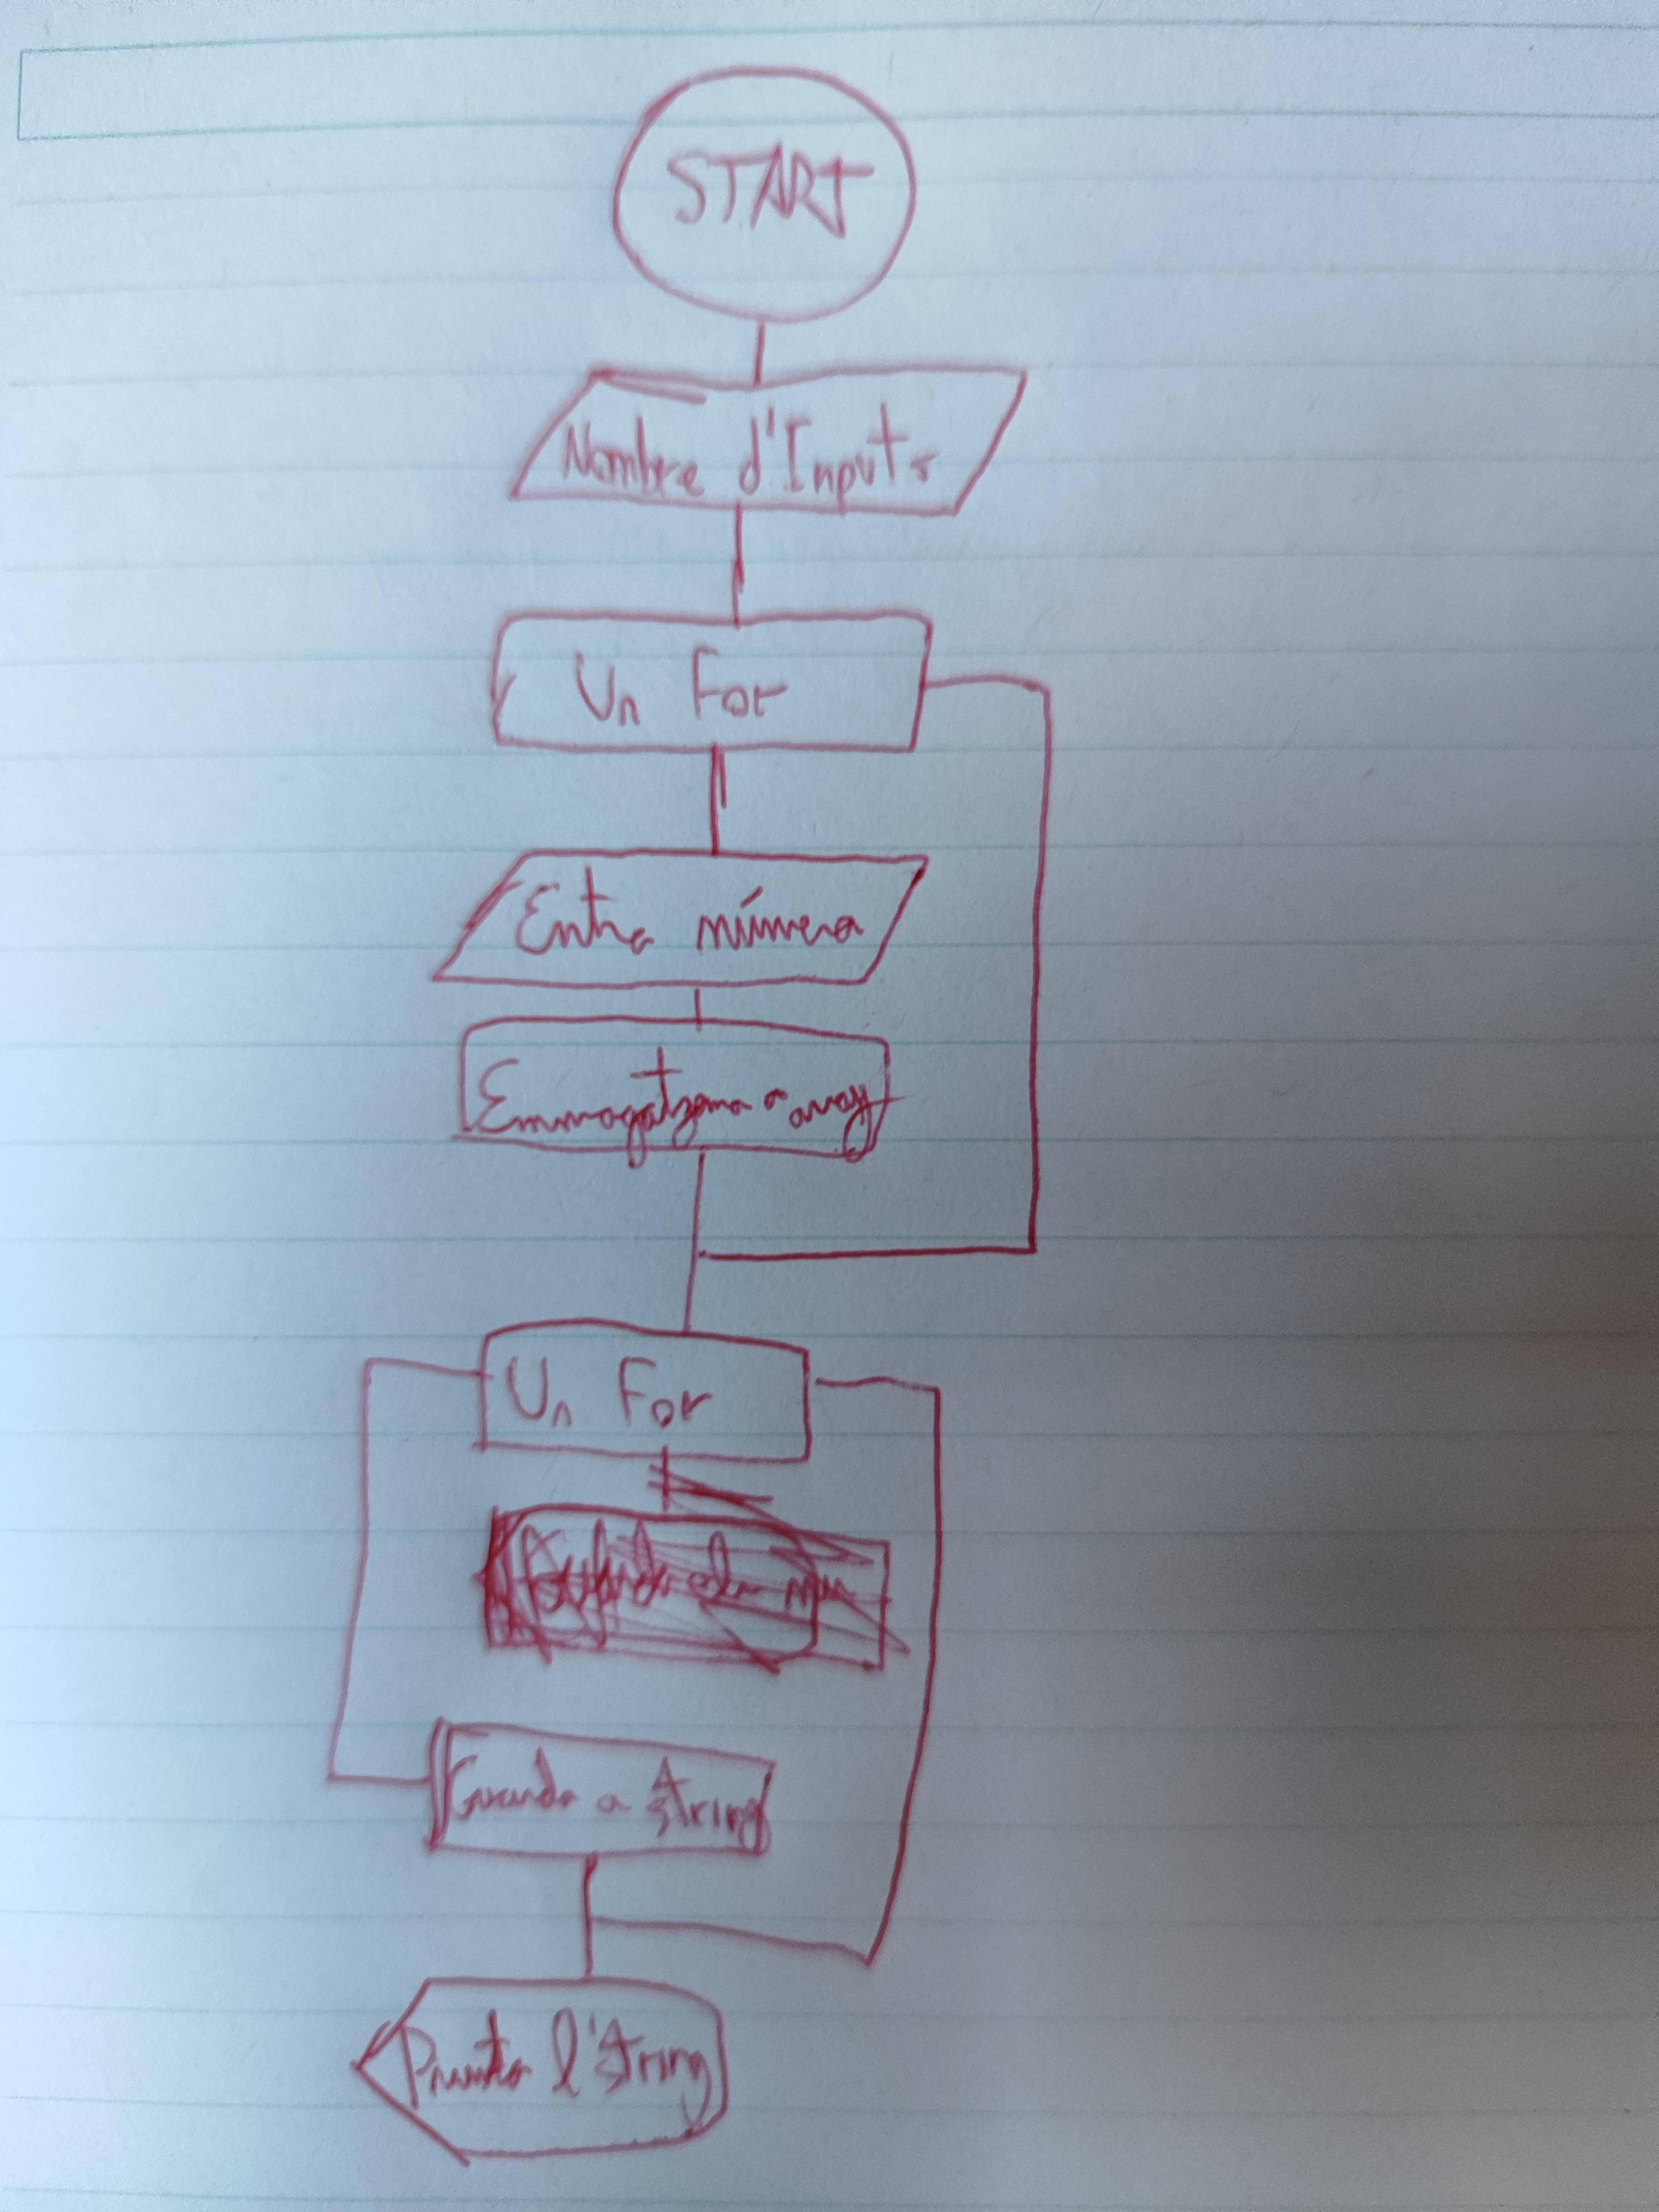 START
Nombre d'Inputs
Un For
Entra número
Emmagatzema a array
Un For
Guarda a String
Printa l'String